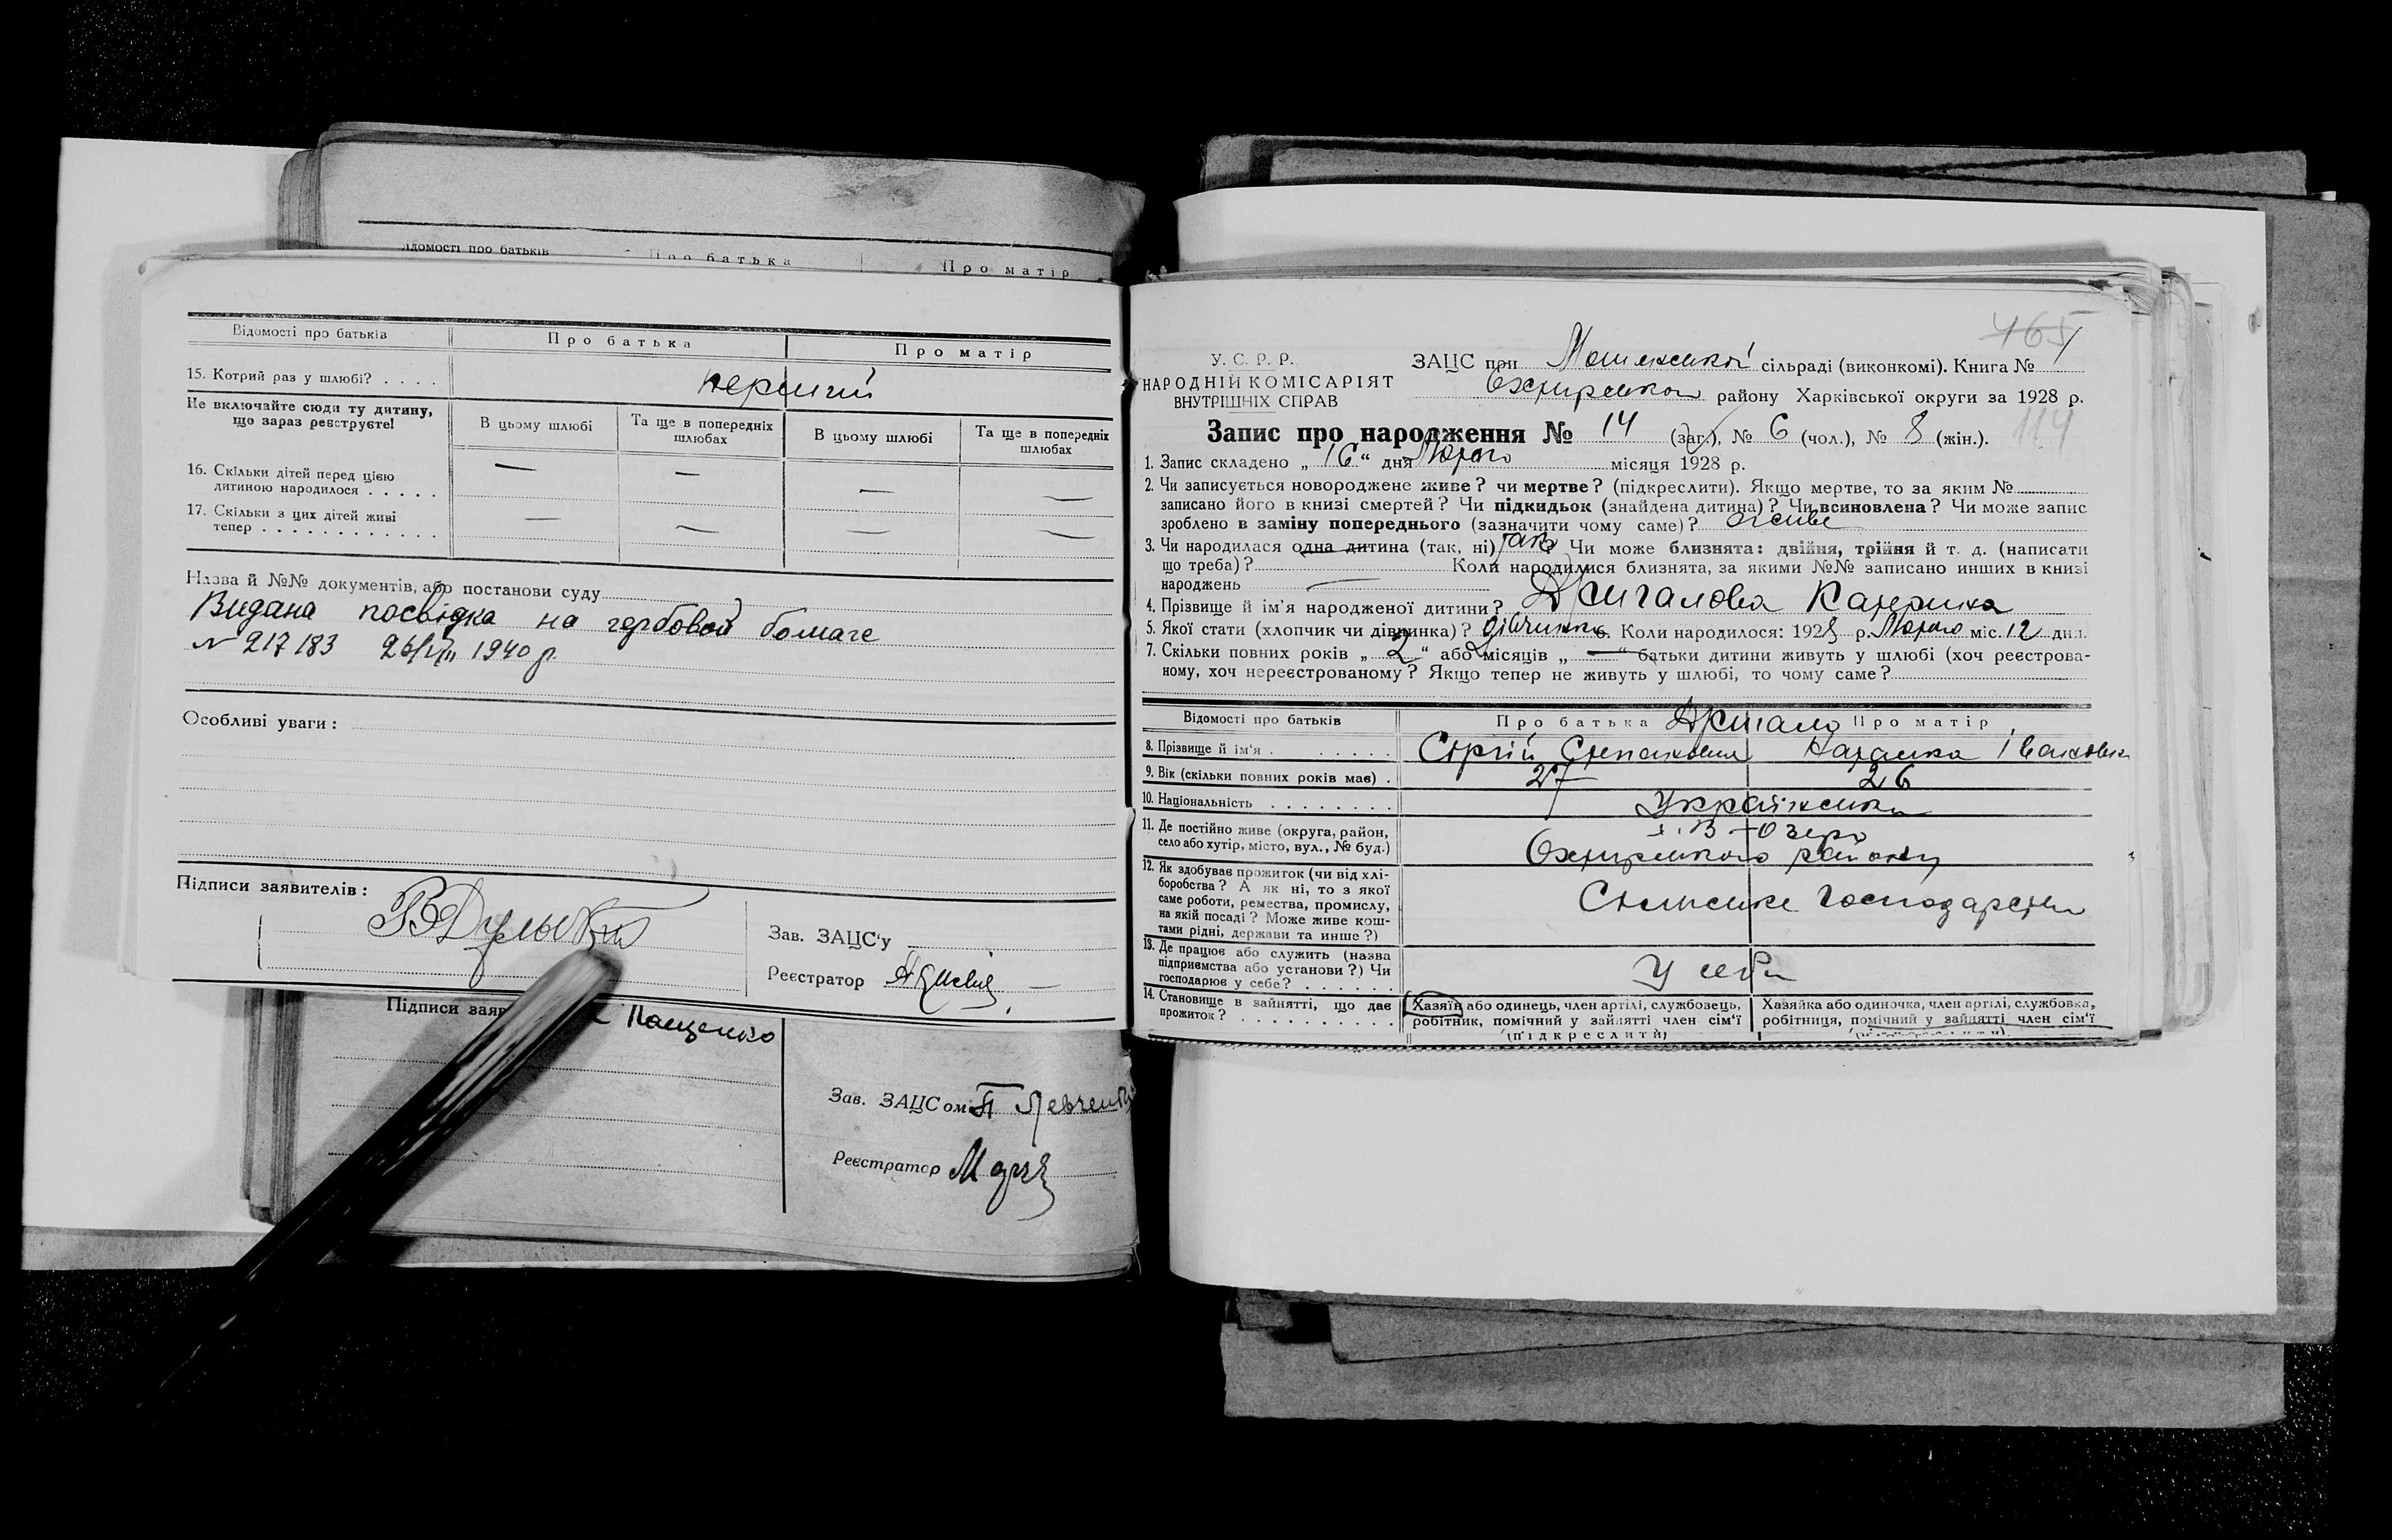 ідомості про батьків Про батька Про матір
Відомості про батьків Про батька Про матір
15. Котрий раз у шлюбі? . . . . перший
Не включайте сюди ту дитину, що зараз реєструєте!
В цьому шлюбі Та ще в попередніх шлюбах В цьому шлюбі Та ще в попередніх шлюбах
16. Скільки дітей перед цією — — — —
дитиною народилося . . . . .
17. Скільки з цих дітей живі — — — —
тепер . . . . . . . . . . . .
Назва й №№ документів, або постанови суду
Видана посвідка на гербовой бомаге
№ 217183 26/VIII 1940 р
Особливі уваги:
Підписи заявителів:
Зав. ЗАЦС'у
Реєстратор
Підписи заяв Пащенко
Зав. ЗАЦСом П Левченко
Реєстратор
465
У. С. Р. Р.
НАРОДНІЙ КОМІСАРІЯТ
ВНУТРІШНІХ СПРАВ
ЗАЦС при сільраді (виконкомі). Книга № 1
Охтирського району Харківської округи за 1928 р.
114
Запис про народження № 14 (заг.), № 6 (чол.), № 8 (жін.).
1. Запис складено „ 16 “ дня Лютого місяця 1928 р.
2. Чи записується новороджене живе? чи мертве? (підкреслити). Якщо мертве, то за яким №
записано його в книзі смертей? Чи підкидьок (знайдена дитина)? Чи всиновлена? Чи може запис
зроблено в заміну попереднього (зазначити чому саме)? живе
3. Чи народилася одна дитина (так, ні) так? Чи може близнята: двійня, трійня й т. д. (написати
що треба)? Коли народилися близнята, за якими №№ записано инших в книзі
народжень —
4. Прізвище й ім'я народженої дитини? Дригалова Катерина
5. Якої стати (хлопчик чи дівчинка)? дівчинка 6. Коли народилося: 1928 р. Лютого міс. 12 дня.
7. Скільки повних років „ 2 “ або місяців „ — “ батьки дитини живуть у шлюбі (хоч реєстрова-
ному, хоч нереєстрованому? Якщо тепер не живуть у шлюбі, то чому саме?
Відомості про батьків Про батька Дригало Про матір
8. Прізвище й ім'я . . . . . . Сергій Степанович Івановна
9. Вік (скільки повних років має) . 27 26
10. Національність . . . . . . . . Українська
11. Де постійно живе (округа, район,
село або хутір, місто, вул., № буд.)
Озеро
Охтирського району
12. Як здобуває прожиток (чи від хлі-
боробства? А як ні, то з якої
саме роботи, ремества, промислу,
на якій посаді? Може живе кош-
тами рідні, держави та инше?)
Сільське господарство
13. Де працює або служить (назва
підприємства або установи?) Чи
господарює у себе? . . . . . .
У себе
14. Становище в зайнятті, що дає
прожиток? . . . . . . . . . .
Хазяїн або одинець, член артілі, службовець,
робітник, помічний у зайнятті член сім'ї
(підкреслити)
Хазяйка або одиночка, член артілі, службовка,
робітниця, помічний у зайнятті член сім'ї